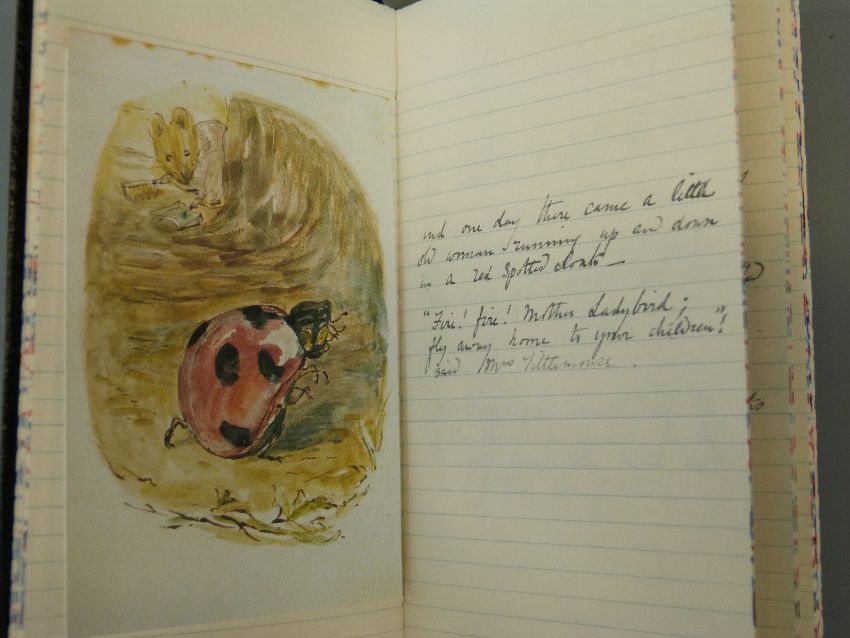 and one day there came a little
old woman running up and down
in a red spotted cloak —
"Fire! fire! Mother Ladybird;
fly away home to your children"!
said Mrs Tittlemouse.
to